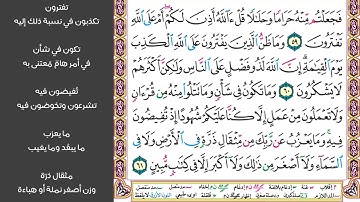 فَجَعَلْتُم مِّنْهُ حَرَامًا وَحَلَٰلًا قُلْ ءَآللَّهُ أَذِنَ لَكُمْ أَمْ عَلَى ٱللَّهِ
تَفْتَرُونَ ٥٩ وَمَا ظَنُّ ٱلَّذِينَ يَفْتَرُونَ عَلَى ٱللَّهِ ٱلْكَذِبَ
يَوْمَ ٱلْقِيَٰمَةِ إِنَّ ٱللَّهَ لَذُو فَضْلٍ عَلَى ٱلنَّاسِ وَلَٰكِنَّ أَكْثَرَهُمْ
لَا يَشْكُرُونَ ٦٠ وَمَا تَكُونُ فِى شَأْنٍ وَمَا تَتْلُوا۟ مِنْهُ مِن قُرْءَانٍ
وَلَا تَعْمَلُونَ مِنْ عَمَلٍ إِلَّا كُنَّا عَلَيْكُمْ شُهُودًا إِذْ تُفِيضُونَ
فِيهِ وَمَا يَعْزُبُ عَن رَّبِّكَ مِن مِّثْقَالِ ذَرَّةٍ فِى ٱلْأَرْضِ وَلَا فِى
ٱلسَّمَآءِ وَلَآ أَصْغَرَ مِن ذَٰلِكَ وَلَآ أَكْبَرَ إِلَّا فِى كِتَٰبٍ مُّبِينٍ ٦١
تفترون
تكذبون في نسبة ذلك إليه
تكون في شأن
في أمر هام مُعتنى به
تُفيضون فيه
تشرعون وتخوضون فيه
ما يعزب
ما يبعُد وما يغيب
مثقال ذرة
وزن أصغر نملة أو هباءة